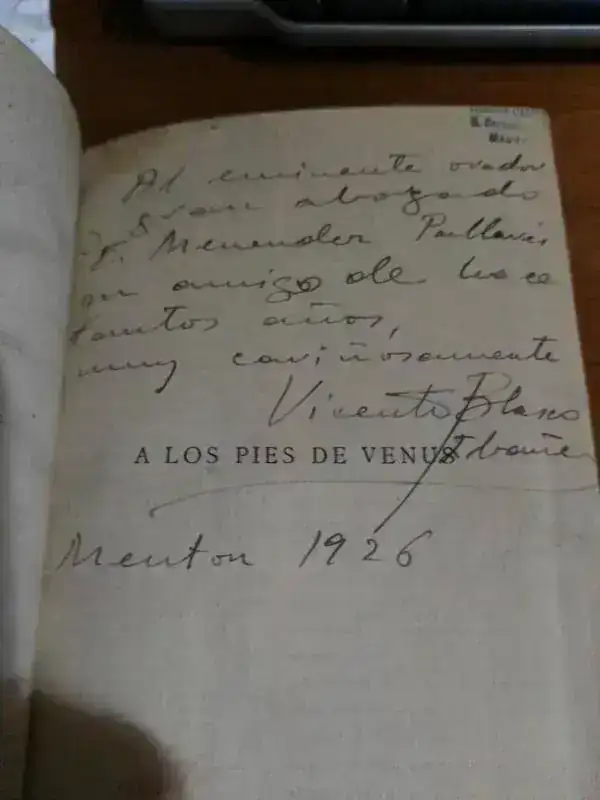 Al eminente orador
gran abogado
Menendez Pallarés
su amigo de hace
tantos años,
muy cariñosamente
Vicente Blasco
Ibañez
A LOS PIES DE VENUS
Menton 1926